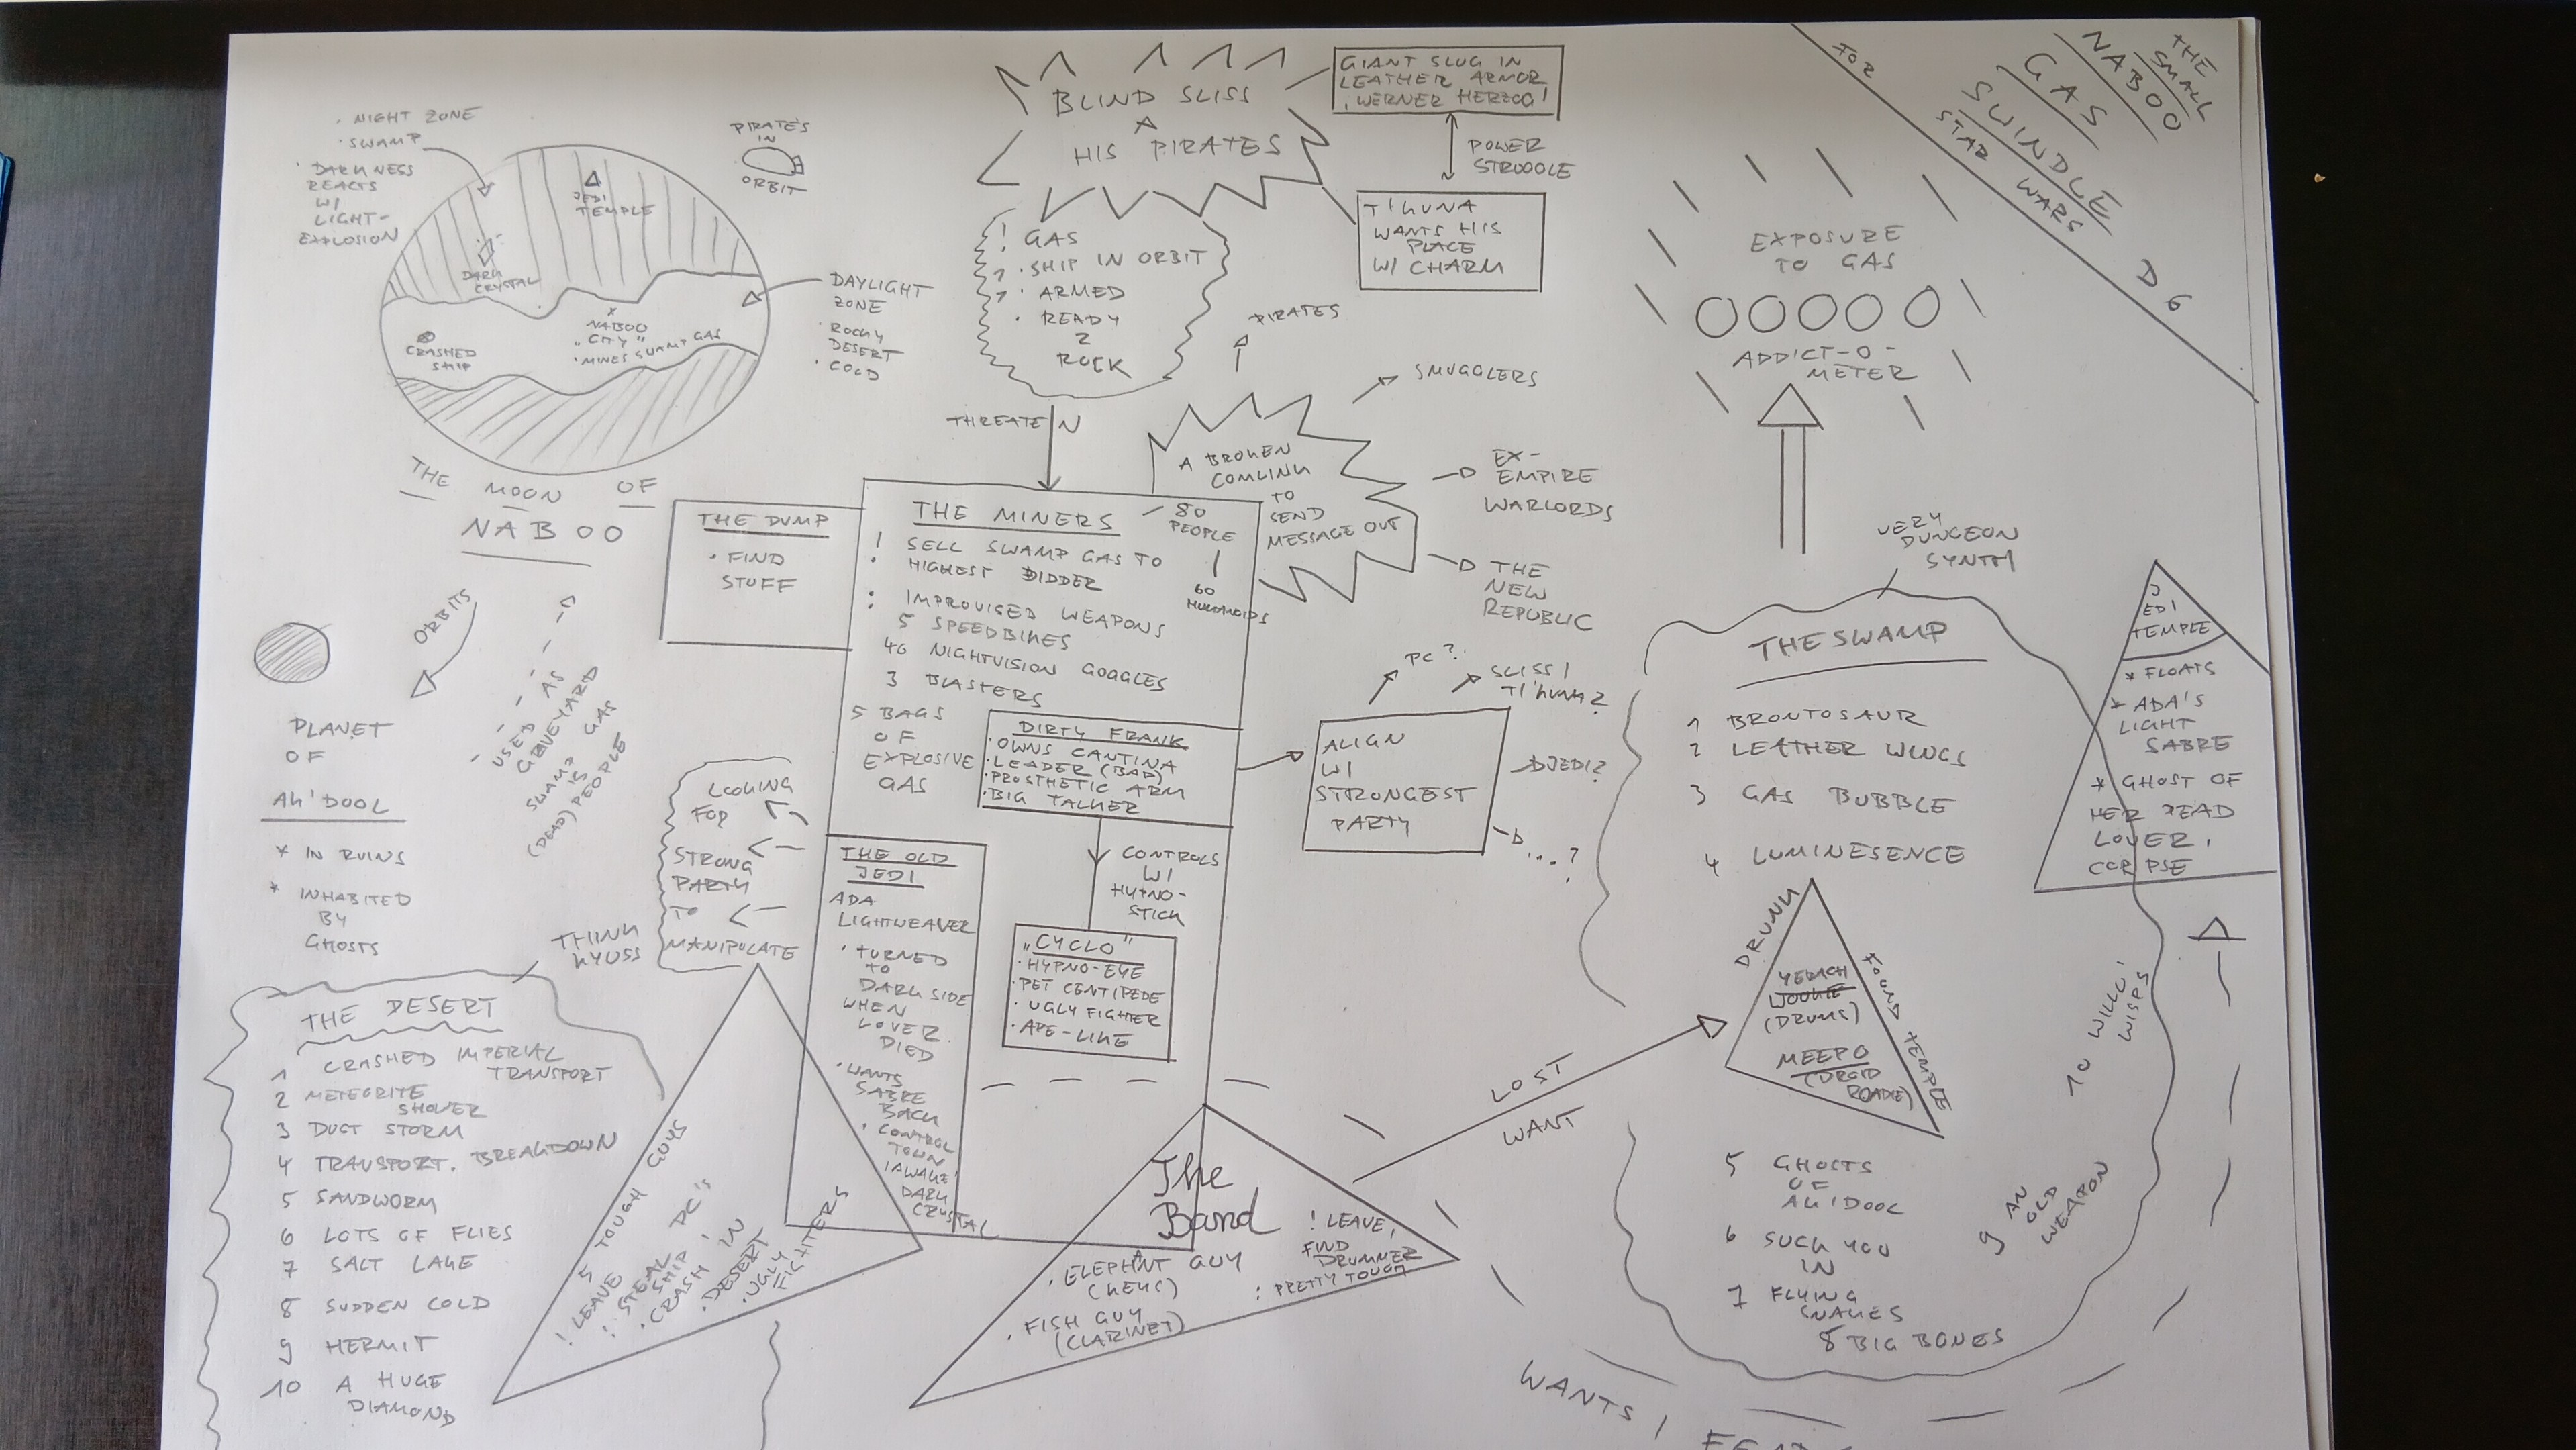 THE
SMALL
NABOO
GAS
SWINDLE
FOR
STAR WARS
D6
· NIGHT ZONE
· SWAMP
· DARKNESS
REACTS
W/
LIGHT-
EXPLOSION
PIRATE'S
IN
ORBIT
JEDI
TEMPLE
DARK
CRYSTAL
x
NABOO
"CITY"
· MINES SWAMP GAS
CRASHED
SHIP
DAYLIGHT
ZONE
· ROCKY
DESERT
· COLD
THE MOON OF
NABOO
ORBITS
USED AS
GRAVEYARD
SWAMP GAS
IS
(DEAD) PEOPLE
PLANET
OF
AK'DOOL
* IN RUINS
* INHABITED
BY
GHOSTS
BLIND SLISS
&
HIS PIRATES
GIANT SLUG IN
LEATHER ARMOR
, WERNER HERZOG!
POWER
STRUGGLE
T'KUNA
WANTS HIS
PLACE
W/ CHARM
! GAS
· SHIP IN ORBIT
· ARMED
· READY
2
ROCK
THREATEN
A BROKEN
COMLINK
TO
SEND
MESSAGE OUT
PIRATES
SMUGGLERS
EX-
EMPIRE
WARLORDS
THE
NEW
REPUBLIC
EXPOSURE
TO GAS
ADDICT-O-
METER
THE DUMP
· FIND
STUFF
THE MINERS
80
PEOPLE
60
HUMANOIDS
! SELL SWAMP GAS TO
HIGHEST BIDDER
: IMPROVISED WEAPONS
5 SPEEDBIKES
40 NIGHTVISION GOGGLES
3 BLASTERS
5 BAGS
OF
EXPLOSIVE
GAS
DIRTY FRANK
· OWNS CANTINA
· LEADER (BAD)
· PROSTHETIC ARM
· BIG TALKER
ALIGN
W/
STRONGEST
PARTY
PC?
SLISS/
T'KUNA?
JEDI?
....?
CONTROLS
W/
HYPNO-
STICK
"CYCLO"
· HYPNO-EYE
· PET CENTIPEDE
· UGLY FIGHTER
· APE-LIKE
THE OLD
JEDI
ADA
LIGHTWEAVER
· TURNED
TO
DARK SIDE
WHEN
LOVER
DIED
· WANTS
SABRE
BACK
· CONTROL
TOWN
/AWAKE
DARK
CRYSTAL
LOOKING
FOR
STRONG
PARTY
TO
MANIPULATE
THINK
KYUSS
THE DESERT
1 CRASHED IMPERIAL
TRANSPORT
2 METEORITE
SHOWER
3 DUST STORM
4 TRANSPORT. BREAKDOWN
5 SANDWORM
6 LOTS OF FLIES
7 SALT LAKE
8 SUDDEN COLD
9 HERMIT
10 A HUGE
DIAMOND
5 TOUGH GUYS
! LEAVE
! STEAL PC'S
SHIP!
· CRASH IN
DESERT
· UGLY
FIGHTERS
The
Band
· ELEPHANT GUY
(KEYS)
· FISH GUY
(CLARINET)
! LEAVE,
FIND
DRUMMER
: PRETTY TOUGH
LOST
WANT
VERY
DUNGEON
SYNTH
THE SWAMP
1 BRONTOSAUR
2 LEATHER WINGS
3 GAS BUBBLE
4 LUMINESENCE
DRUNK
FOUND TEMPLE
WOOKIE
(DRUMS)
MEEPO
(DROID
ROADIE)
5 GHOSTS
OF
AK'DOOL
6 SUCK YOU
IN
7 FLYING
SNAKES
8 BIG BONES
9 AN
OLD
WEAPON
10 WILL O'
WISPS
JEDI
TEMPLE
* FLOATS
* ADA'S
LIGHT
SABRE
* GHOST OF
HER DEAD
LOVER,
CORPSE
WANTS /